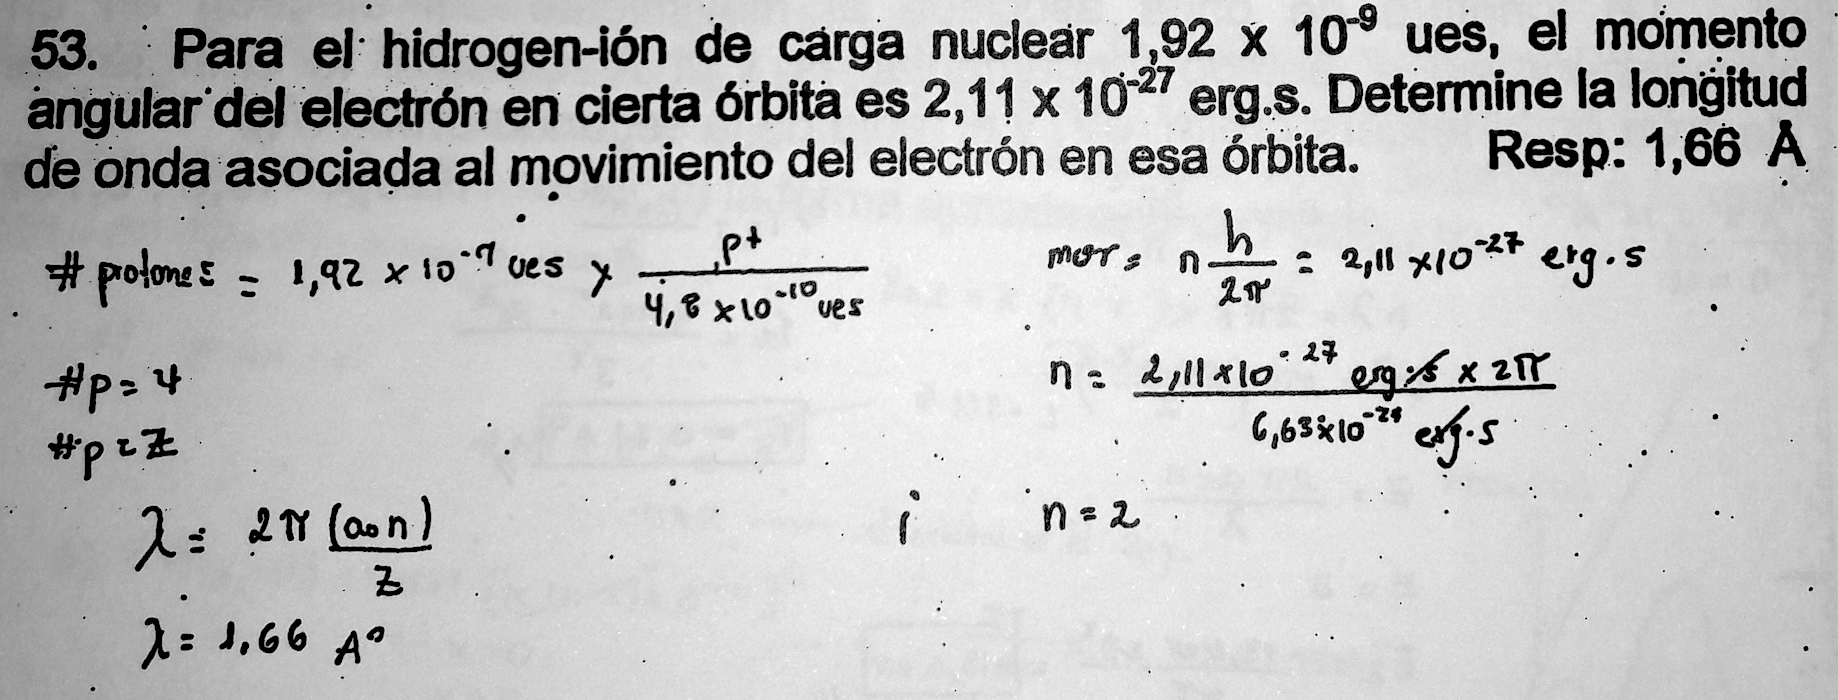 53. Para el hidrogen-ión de carga nuclear 1,92 x 10⁻⁹ ues, el momento
angular del electrón en cierta órbita es 2,11 x 10⁻²⁷ erg.s. Determine la longitud
de onda asociada al movimiento del electrón en esa órbita. Resp: 1,66 Å
# protones = 1,92 x 10⁻⁹ ues x p⁺ / 4,8 x 10⁻¹⁰ ues
mor = n h/2π = 2,11 x 10⁻²⁷ erg.s
#p = 4
n = 2,11 x 10⁻²⁷ erg.s x 2π / 6,63 x 10⁻²⁷ erg.s
#p = Z
λ = 2π (a₀ n) / Z ; n = 2
λ = 1,66 A°